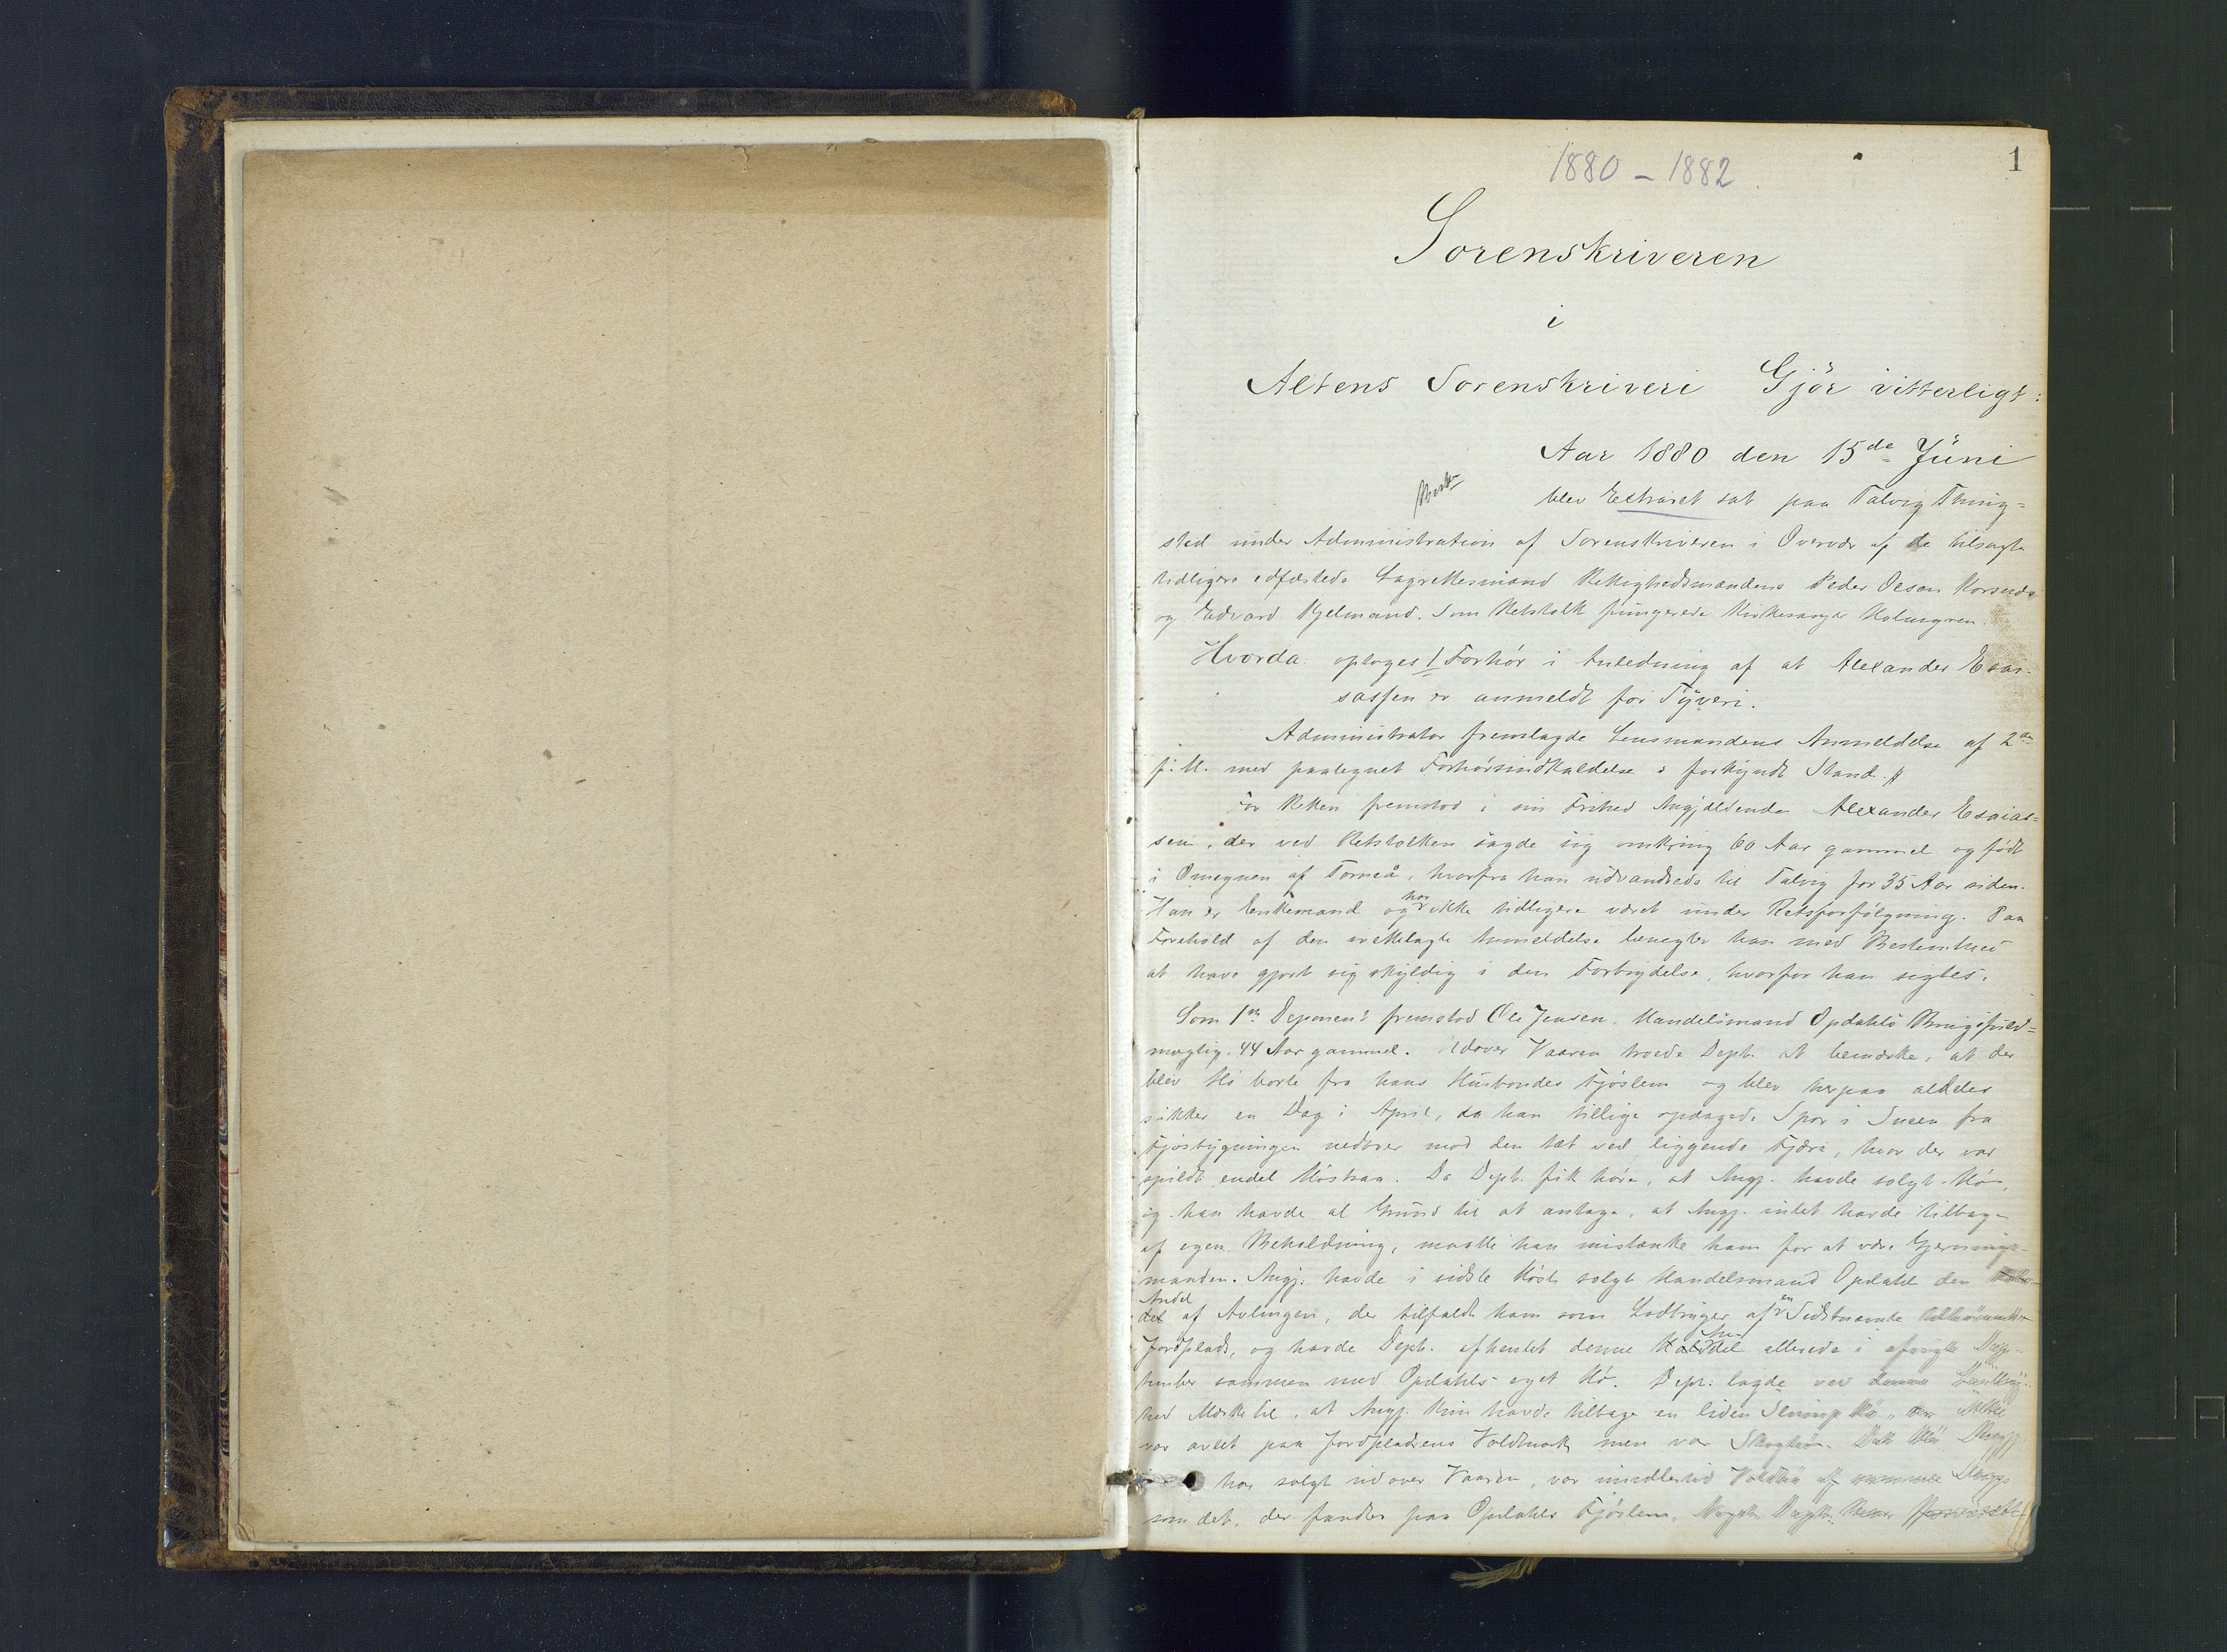 1
1880 - 1882.
Sorenskriveren
i
Altens Sorenskriveri Gjör vitterligt:
Aar 1880 den 15de Juni
blev Extraret sat paa Talvig Thing=
sted under Administration af Sorenskriveren i Overvær af de tilsagte
tidligere edfæstede Lagrettesmænd Rettighedsmændene Peder Olsen
og Edvard Kjelmand. Som Retstolk fungerede Kirkesanger Holmgren.
Hvorda optoges 1/ Forhör i Anledning af at Alexander Esai-
assen er anmeldt for Tyveri.
Administrator fremlagde Lensmandens Anmeldelse af 2den
f. M. med paategnet Forhörsindkaldelse i forkyndt Stand. #
For Retten fremstod i sin Frihed Angjældende Alexander Esaias=
sen, der ved Retstolken sagde sig omkring 60 Aar gammel og födt
i Omegnen af Torneå, hvorfra han udvandrede til Talvig for 35 Aar siden.
Han er Enkemand og har ikke tidligere været under Retsforfölgning. Paa
Forehold af den irettelagte Anmeldelse benegter han med Bestemthed
at have gjort sig skyldig i den Forbrydelse, hvorfor han sigtes.
Som 1ste Deponent fremstod Ole Jensen, Handelsmand Opdahls Brugsfuld=
mægtig, 44 Aar gammel. Udover Vaaren troede Dept. at bemærke, at der
blev Hö borte fra hans Husbondes Fjöslem og blev herpaa aldeles
sikker en Dag i April, da han tillige opdagede Spor i Sneen fra
Fjösbygningen nedover mod den tæt ved liggende Fjære, hvor der var
spildt endel Höstraa. Da Dept. fik höre, at Angj. havde solgt Hö,
og han havde al Grund til at antage, at Angj. intet havde tilbage
af egen Beholdning, maatte han mistænke ham for at være Gjernings-
manden. Angj. havde i sidste Höst solgt Handelsmand Opdahl den
Andel
af Avlingen, der tilfaldt ham som Lodbruger af en Sidstnævnte
Jordplads, og havde Dept. afhentet denne allerede i Sep-
tember sammen med Opdahls eget Hö. Dept. lagde ved
hed Mærke til, at Angj. kun havde tilbage en liden Slump Hö, der ikke
var avlet paa Jordpladsens Voldmark men var Skoghö. Det Hö Angj.
har solgt udover Vaaren, var imidlertid Voldhö af samme Slags
som det, der fandtes paa Opdahls Fjöslem.